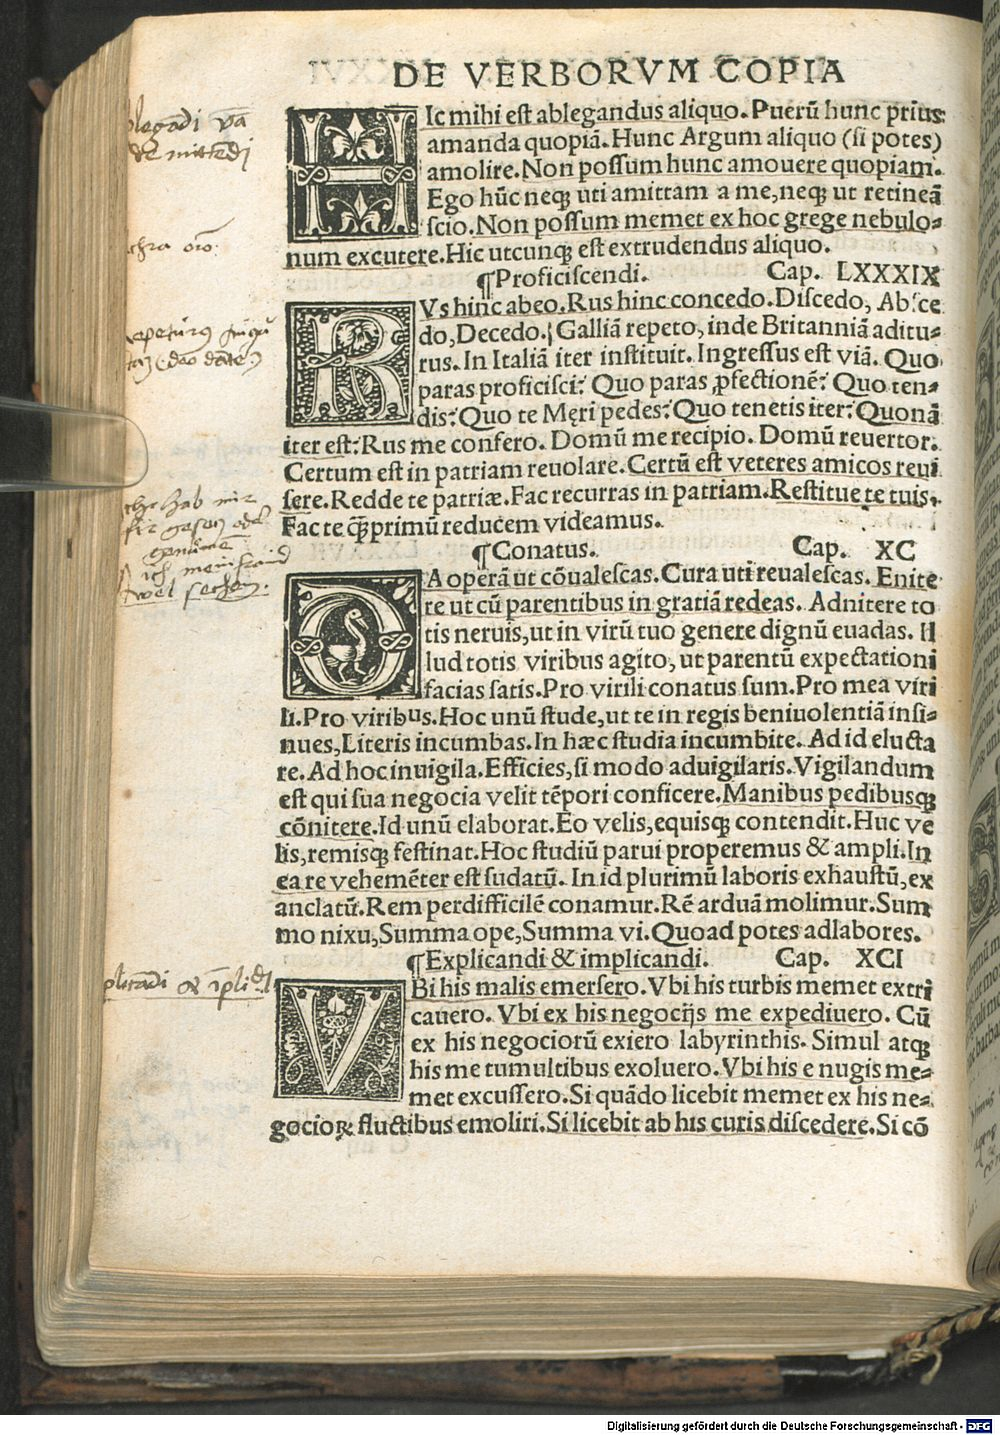 DE VERBORVM COPIA
HIc mihi est ablegandus aliquo. Puerũ hunc prius
amanda quopiã. Hunc Argum aliquo (si potes)
amolire. Non possum hunc amouere quopiam.
Ego hũc neqꝫ uti amittam a me, neqꝫ ut retineã
scio. Non possum memet ex hoc grege nebulo-
num excutere. Hic utcunqꝫ est extrudendus aliquo.
¶Proficiscendi. Cap. LXXXIX
RVs hinc abeo. Rus hinc concedo. Discedo, Absce
do, Decedo. Galliã repeto, inde Britanniã aditu-
rus. In Italiã iter instituit. Ingressus est viã. Quo
paras proficisci? Quo paras ꝓfectionẽ? Quo ten-
dis? Quo te Męri pedes? Quo tenetis iter? Quonã
iter est? Rus me confero. Domũ me recipio. Domũ reuertor.
Certum est in patriam reuolare. Certũ est veteres amicos reui
sere. Redde te patriæ. Fac recurras in patriam. Restitue te tuis.
Fac te qꝫ̃primũ reducem videamus.
¶Conatus. Cap. XC
DA operã ut cõualescas. Cura uti reualescas. Enite
re ut cũ parentibus in gratiã redeas. Adnitere to
tis neruis, ut in virũ tuo genere dignũ euadas. Il
lud totis viribus agito, ut parentũ expectationi
facias satis. Pro virili conatus sum. Pro mea viri
li. Pro viribus. Hoc unũ stude, ut te in regis beniuolentiã insi-
nues, Literis incumbas. In hæc studia incumbite. Ad id elucta
re. Ad hoc inuigila. Efficies, si modo aduigilaris. Vigilandum
est qui sua negocia velit tẽpori conficere. Manibus pedibusqꝫ
cõnitere. Id unũ elaborat. Eo velis, equisqꝫ contendit. Huc ve
lis, remisqꝫ festinat. Hoc studiũ parui properemus & ampli. In
ea re vehemẽter est sudatũ. In id plurimũ laboris exhaustũ, ex
anclatũ. Rem perdifficilẽ conamur. Rẽ arduã molimur. Sum
mo nixu, Summa ope, Summa vi. Quoad potes adlabores.
¶Explicandi & implicandi. Cap. XCI
VBi his malis emersero. Vbi his turbis memet extri
cauero. Vbi ex his negocijs me expediuero. Cũ
ex his negociorũ exiero labyrinthis. Simul atqꝫ
his me tumultibus exoluero. Vbi his e nugis me-
met excussero. Si quãdo licebit memet ex his ne-
gocioꝝ fluctibus emoliri. Si licebit ab his curis discedere. Si cõ
Digitalisierung gefördert durch die Deutsche Forschungsgemeinschaft - DFG